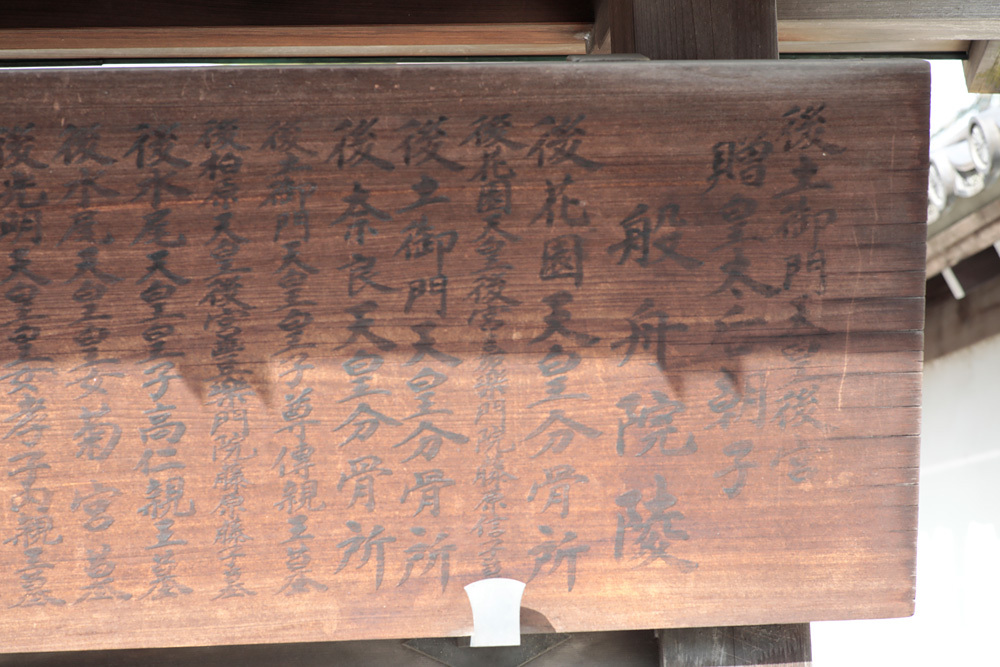 後土御門天皇後宮
贈皇太后朝子
般舟院陵
後花園天皇分骨所
後花園天皇後宮嘉楽門院藤原信子墓
後土御門天皇分骨所
後奈良天皇分骨所
後土御門天皇皇子尊伝親王墓
後柏原天皇後宮豊楽門院藤原藤子墓
後水尾天皇皇子高仁親王墓
後水尾天皇皇女菊宮墓
後光明天皇皇女孝子内親王墓